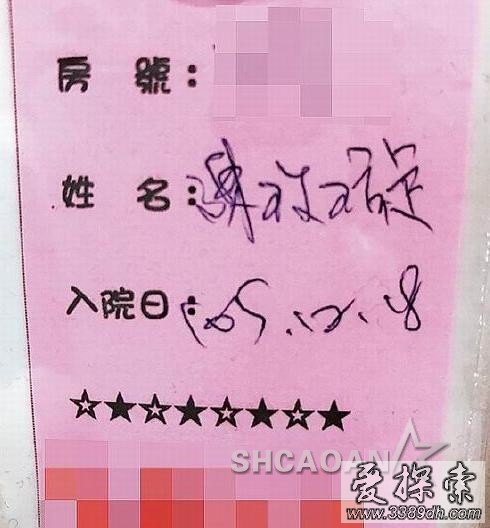 房 號:
姓 名:
入院日: 105.12.18
☆★☆★☆★☆★
SHCAOAN
爱探索
www.3389dh.com